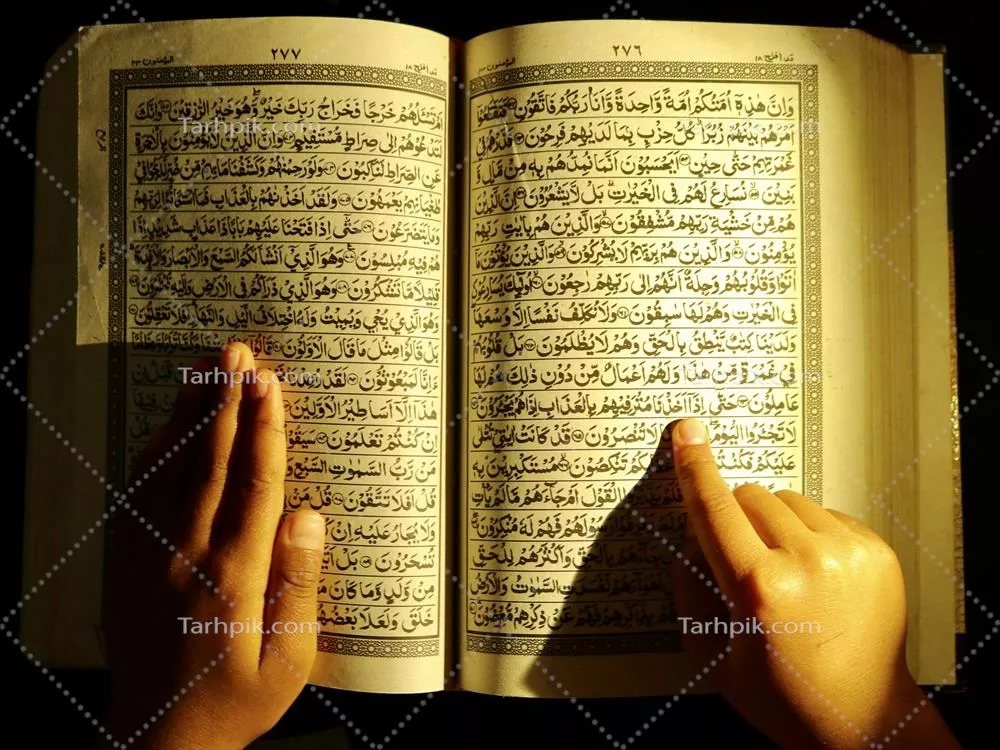 ٢٧٦
قد افلح ١٨
المؤمنون ٢٣
وَاِنَّ هٰذِهٖٓ اُمَّتُكُمْ اُمَّةً وَّاحِدَةً وَّاَنَا رَبُّكُمْ فَاتَّقُوْنِ فَتَقَطَّعُوْٓا
اَمْرَهُمْ بَيْنَهُمْ زُبُرًا كُلُّ حِزْبٍۭ بِمَا لَدَيْهِمْ فَرِحُوْنَ فَذَرْهُمْ فِيْ
غَمْرَتِهِمْ حَتّٰى حِيْنٍ اَيَحْسَبُوْنَ اَنَّمَا نُمِدُّهُمْ بِهٖ مِنْ مَّالٍ وَّ
بَنِيْنَ نُسَارِعُ لَهُمْ فِى الْخَيْرٰتِ بَلْ لَّا يَشْعُرُوْنَ اِنَّ الَّذِيْنَ
هُمْ مِّنْ خَشْيَةِ رَبِّهِمْ مُّشْفِقُوْنَ وَالَّذِيْنَ هُمْ بِاٰيٰتِ رَبِّهِمْ
يُؤْمِنُوْنَ وَالَّذِيْنَ هُمْ بِرَبِّهِمْ لَا يُشْرِكُوْنَ وَالَّذِيْنَ يُؤْتُوْنَ مَآ
اٰتَوْا وَّقُلُوْبُهُمْ وَجِلَةٌ اَنَّهُمْ اِلٰى رَبِّهِمْ رٰجِعُوْنَ اُولٰٓئِكَ يُسَارِعُوْنَ
فِى الْخَيْرٰتِ وَهُمْ لَهَا سٰبِقُوْنَ وَلَا نُكَلِّفُ نَفْسًا اِلَّا وُسْعَهَا
وَلَدَيْنَا كِتٰبٌ يَّنْطِقُ بِالْحَقِّ وَهُمْ لَا يُظْلَمُوْنَ بَلْ قُلُوْبُهُمْ
فِيْ غَمْرَةٍ مِّنْ هٰذَا وَلَهُمْ اَعْمَالٌ مِّنْ دُوْنِ ذٰلِكَ هُمْ لَهَا
عَامِلُوْنَ حَتّٰٓى اِذَآ اَخَذْنَا مُتْرَفِيْهِمْ بِالْعَذَابِ اِذَا هُمْ يَجْـَٔرُوْنَ
لَا تَجْـَٔرُوا الْيَوْمَ لَا تُنْصَرُوْنَ قَدْ كَانَتْ اٰيٰتِيْ تُتْلٰى
عَلَيْكُمْ فَكُنْتُمْ تَنْكِصُوْنَ مُسْتَكْبِرِيْنَ بِهٖ
الْقَوْلَ اَمْ جَآءَهُمْ مَّا لَمْ يَاْتِ
رَسُوْلَهُمْ فَهُمْ لَهٗ مُنْكِرُوْنَ
بِالْحَقِّ وَاَكْثَرُهُمْ لِلْحَقِّ
لَفَسَدَتِ السَّمٰوٰتُ وَالْاَرْضُ
فَهُمْ عَنْ ذِكْرِهِمْ مُّعْرِضُوْنَ
٢٧٧
قد افلح ١٨
المؤمنون ٢٣
اَمْ تَسْـَٔلُهُمْ خَرْجًا فَخَرَاجُ رَبِّكَ خَيْرٌ وَّهُوَ خَيْرُ الرّٰزِقِيْنَ وَاِنَّكَ
لَتَدْعُوْهُمْ اِلٰى صِرَاطٍ مُّسْتَقِيْمٍ وَاِنَّ الَّذِيْنَ لَا يُؤْمِنُوْنَ بِالْاٰخِرَةِ
عَنِ الصِّرَاطِ لَنٰكِبُوْنَ وَلَوْ رَحِمْنٰهُمْ وَكَشَفْنَا مَا بِهِمْ مِّنْ ضُرٍّ لَّلَجُّوْا فِيْ
طُغْيَانِهِمْ يَعْمَهُوْنَ وَلَقَدْ اَخَذْنٰهُمْ بِالْعَذَابِ فَمَا اسْتَكَانُوْا لِرَبِّهِمْ
وَمَا يَتَضَرَّعُوْنَ حَتّٰٓى اِذَا فَتَحْنَا عَلَيْهِمْ بَابًا ذَا عَذَابٍ شَدِيْدٍ اِذَا
هُمْ فِيْهِ مُبْلِسُوْنَ وَهُوَ الَّذِيْٓ اَنْشَاَ لَكُمُ السَّمْعَ وَالْاَبْصَارَ وَالْاَفْـِٕدَةَ
قَلِيْلًا مَّا تَشْكُرُوْنَ وَهُوَ الَّذِيْ ذَرَاَكُمْ فِى الْاَرْضِ وَاِلَيْهِ تُحْشَرُوْنَ
وَهُوَ الَّذِيْ يُحْيٖ وَيُمِيْتُ وَلَهُ اخْتِلَافُ الَّيْلِ وَالنَّهَارِ اَفَلَا تَعْقِلُوْنَ
بَلْ قَالُوْا مِثْلَ مَا قَالَ الْاَوَّلُوْنَ قَالُوْٓا
ءَاِنَّا لَمَبْعُوْثُوْنَ لَقَدْ
هٰذَآ اِلَّآ اَسَاطِيْرُ الْاَوَّلِيْنَ
اِنْ كُنْتُمْ تَعْلَمُوْنَ سَيَقُوْ
مَنْ رَّبُّ السَّمٰوٰتِ السَّبْعِ وَ
قُلْ اَفَلَا تَتَّقُوْنَ قُلْ مَنْ
وَلَا يُجَارُ عَلَيْهِ اِنْ كُ
تُسْحَرُوْنَ بَلْ اَتَيْ
مِنْ وَّلَدٍ وَّمَا كَانَ مَ
خَلَقَ وَلَعَلَا بَعْضُهُ
Tarhpik.com
Tarhpik.com
Tarhpik.com
Tarhpik.com
Tarhpik.com
Tarhpik.com